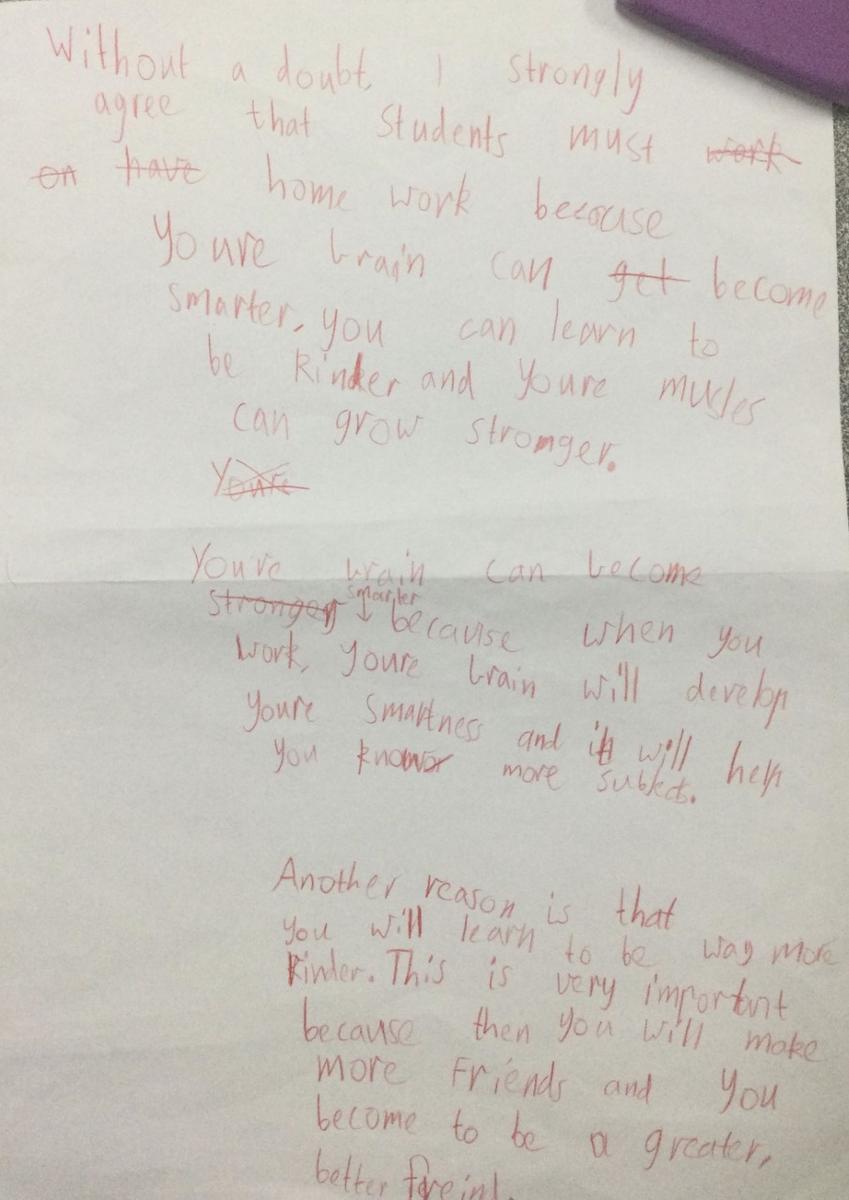 Without a doubt, I strongly
agree that students must work
on have home work because
Youre brain can get become
smarter, you can learn to
be kinder and youre musles
can grow stronger.
Youre
Youre brain can become
stronger smarter because when you
work, youre brain will develop
youre smartness and it will help
you know more subjects.
Another reason is that
you will learn to be way more
kinder. This is very important
because then you will make
more Friends and you
become to be a greater,
better